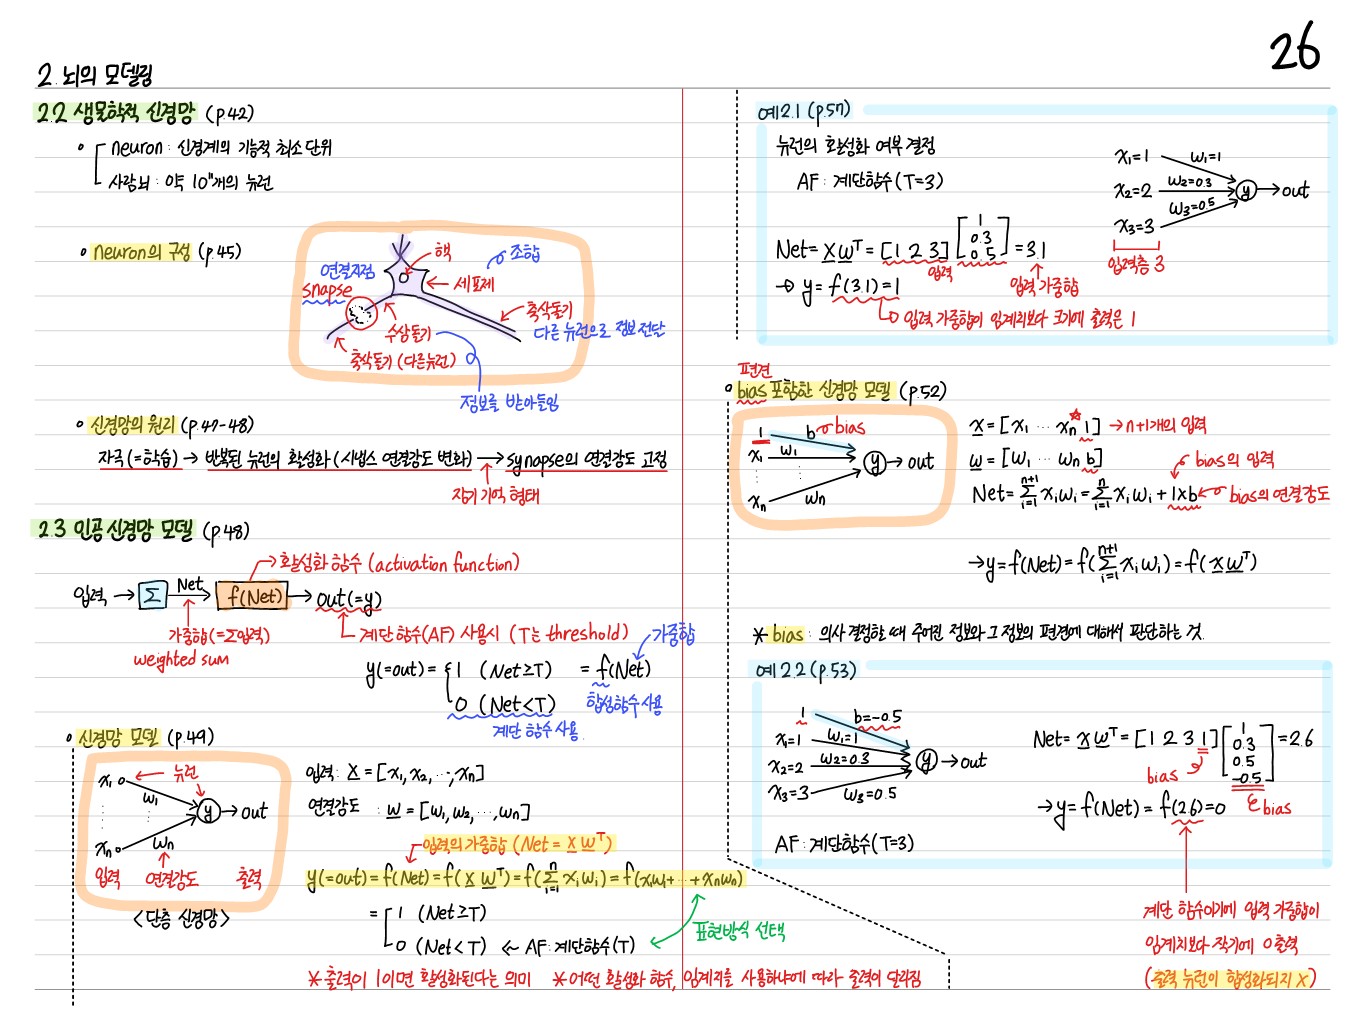 26
2. 뇌의 모델링
2.2 생물학적 신경망 (p.42)
neuron : 신경계의 기능적 최소 단위
사람뇌 : 약 10"개의 뉴런
neuron의 구성 (p.45)
핵
조합
연결지점
snapse
세포체
축삭돌기
다른 뉴런으로 정보 전달
수상돌기
축삭돌기 (다른뉴런)
정보를 받아들임
신경망의 원리 (p.47-48)
자극(=학습) → 반복된 뉴런의 활성화 (시냅스 연결강도 변화) → synapse의 연결강도 고정
장기 기억 형태
2.3 인공 신경망 모델 (p.48)
활성화 함수 (activation function)
입력 → Σ Net → f(Net) → out(=y)
가중합(=Σ입력)
weighted sum
계단 함수(AF) 사용시 (T는 threshold)
가중합
y(=out) = { 1 (Net≥T) = f(Net)
0 (Net<T) 합성함수 사용
계단 함수 사용
신경망 모델 (p.49)
x₁ 뉴런
w₁
y → out
xₙ wₙ
입력 연결강도 출력
<단층 신경망>
입력 : x = [x₁, x₂, ⋯, xₙ]
연결강도 : w = [w₁, w₂, ⋯, wₙ]
입력의 가중합 (Net = x wᵀ)
y(=out) = f(Net) = f(x wᵀ) = f(Σⁿᵢ₌₁ xᵢwᵢ) = f(x₁w₁+ ⋯ +xₙwₙ)
= 1 (Net≥T)
0 (Net<T) ← AF : 계단함수(T)
표현방식 선택
* 출력이 1이면 활성화된다는 의미 * 어떤 활성화 함수, 임계치를 사용하냐에 따라 출력이 달라짐
예 2.1 (p.57)
뉴런의 활성화 여부 결정
AF : 계단함수 (T=3)
x₁=1 w₁=1
x₂=2 w₂=0.3 y → out
x₃=3 w₃=0.5
입력층 3
Net = x wᵀ = [1 2 3] [1 0.3 0.5] = 3.1
입력
입력 가중합
→ y = f(3.1) = 1
입력 가중합이 임계치보다 크기에 출력은 1
편견
bias 포함한 신경망 모델 (p.52)
1 b bias
x₁ w₁
y → out
xₙ wₙ
x = [x₁ ⋯ xₙ 1] → n+1개의 입력
w = [w₁ ⋯ wₙ b]
bias의 입력
Net = Σⁿ⁺¹ᵢ₌₁ xᵢwᵢ = Σⁿᵢ₌₁ xᵢwᵢ + 1×b bias의 연결강도
→ y = f(Net) = f(Σⁿ⁺¹ᵢ₌₁ xᵢwᵢ) = f(x wᵀ)
* bias : 의사 결정할 때 주어진 정보와 그 정보의 편견에 대해서 판단하는 것.
예 2.2 (p.53)
1 b=-0.5
x₁=1 w₁=1
x₂=2 w₂=0.3 y → out
x₃=3 w₃=0.5
AF : 계단함수 (T=3)
Net = x wᵀ = [1 2 3 1] [1 0.3 0.5 -0.5] = 2.6
bias
bias
→ y = f(Net) = f(2.6) = 0
계단 함수이기에 입력 가중합이
임계치보다 작기에 0 출력
(출력 뉴런이 합성화되지 X)